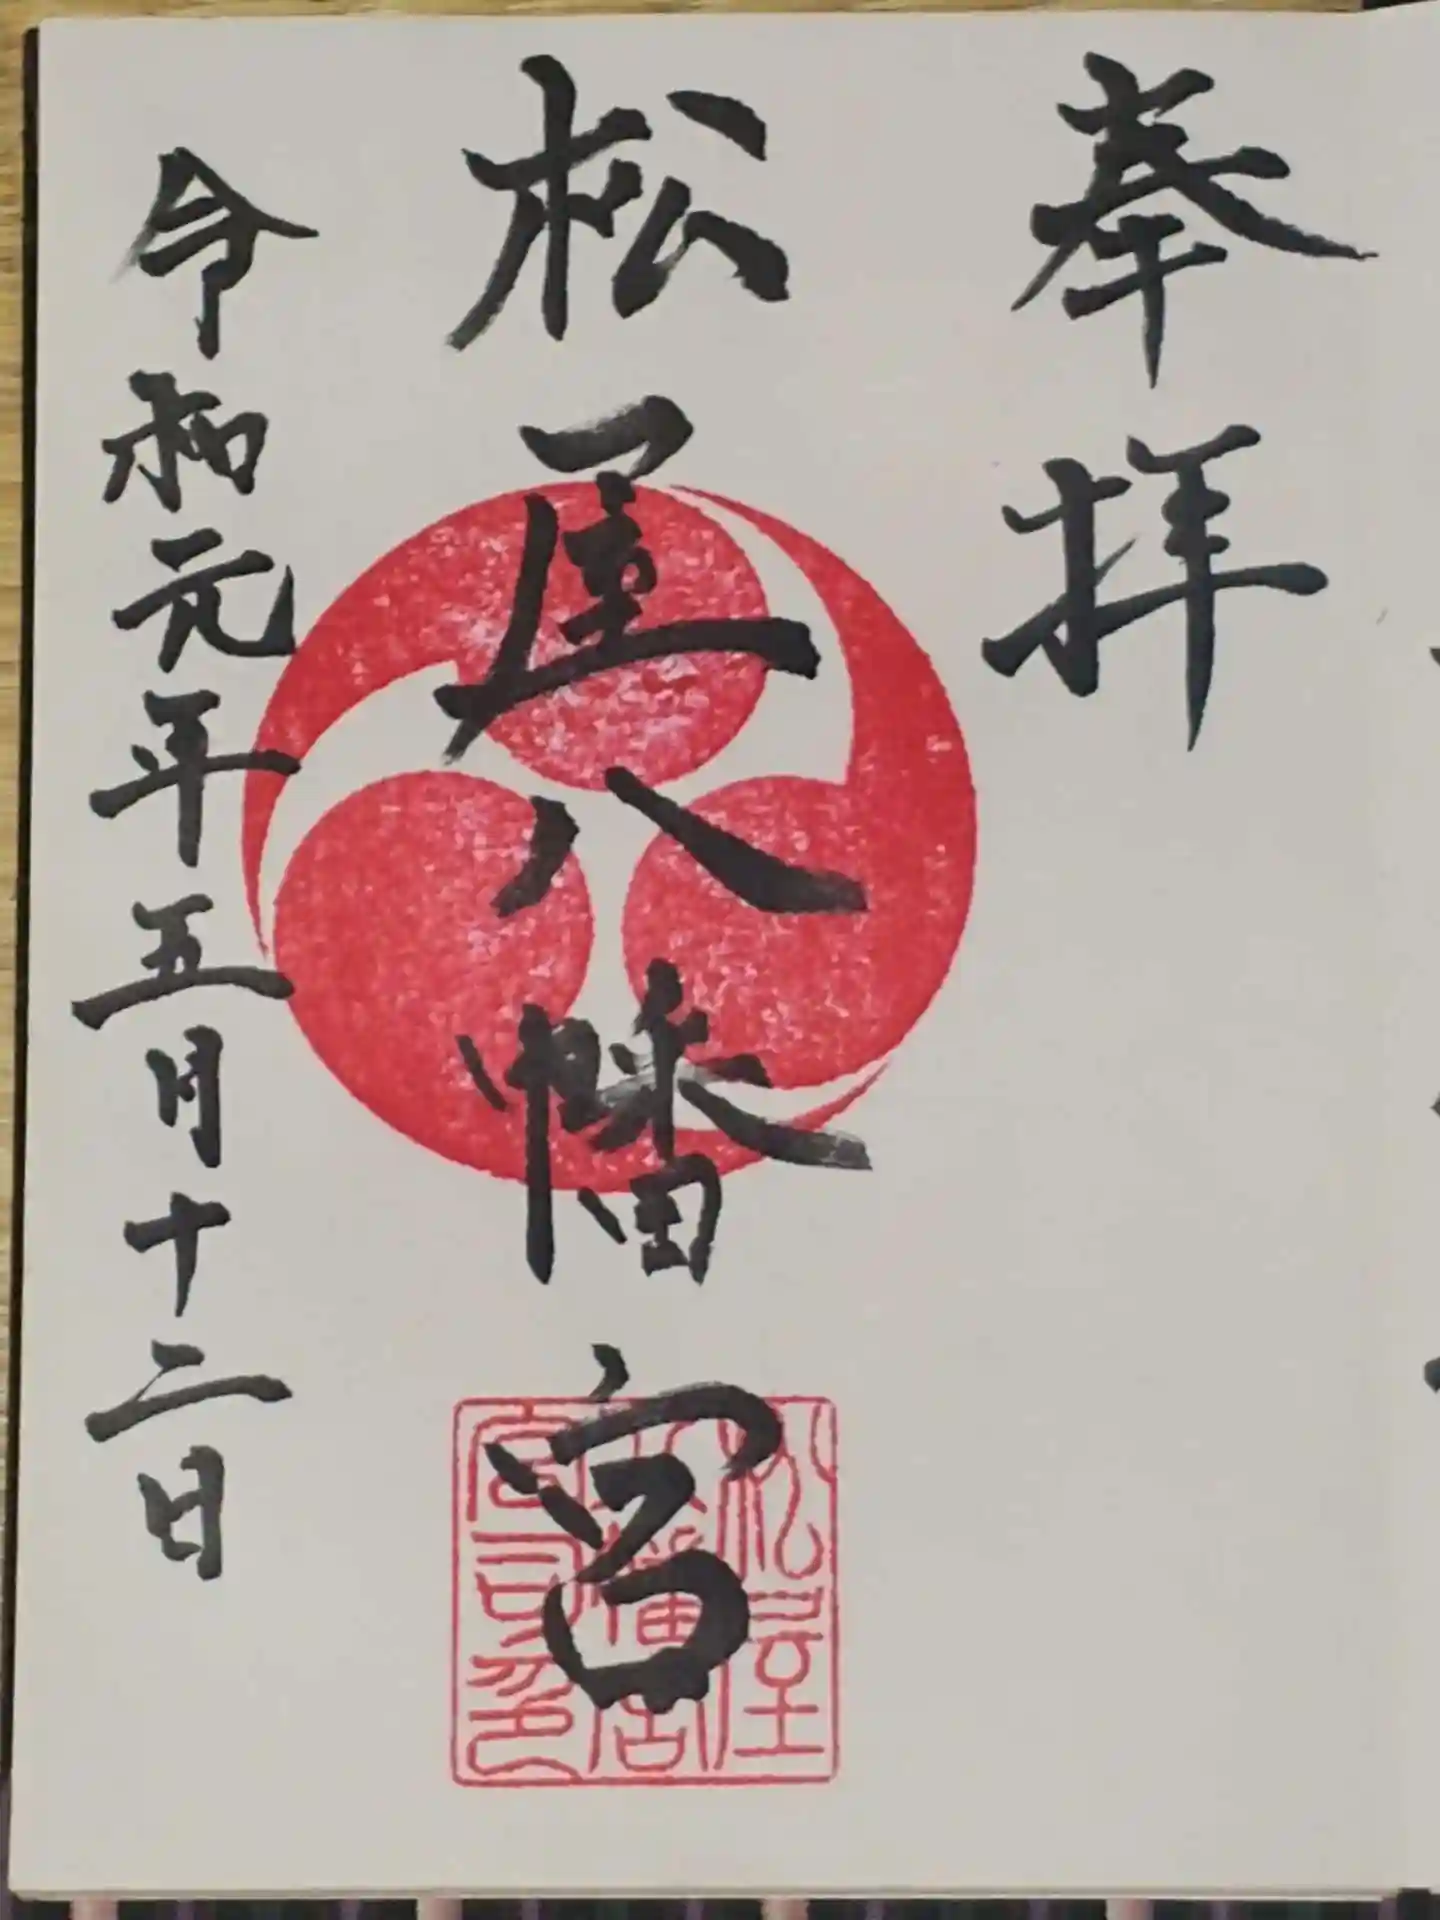 奉拝
松屋八幡宮
令和元年五月十二日
松屋八幡宮宮司印